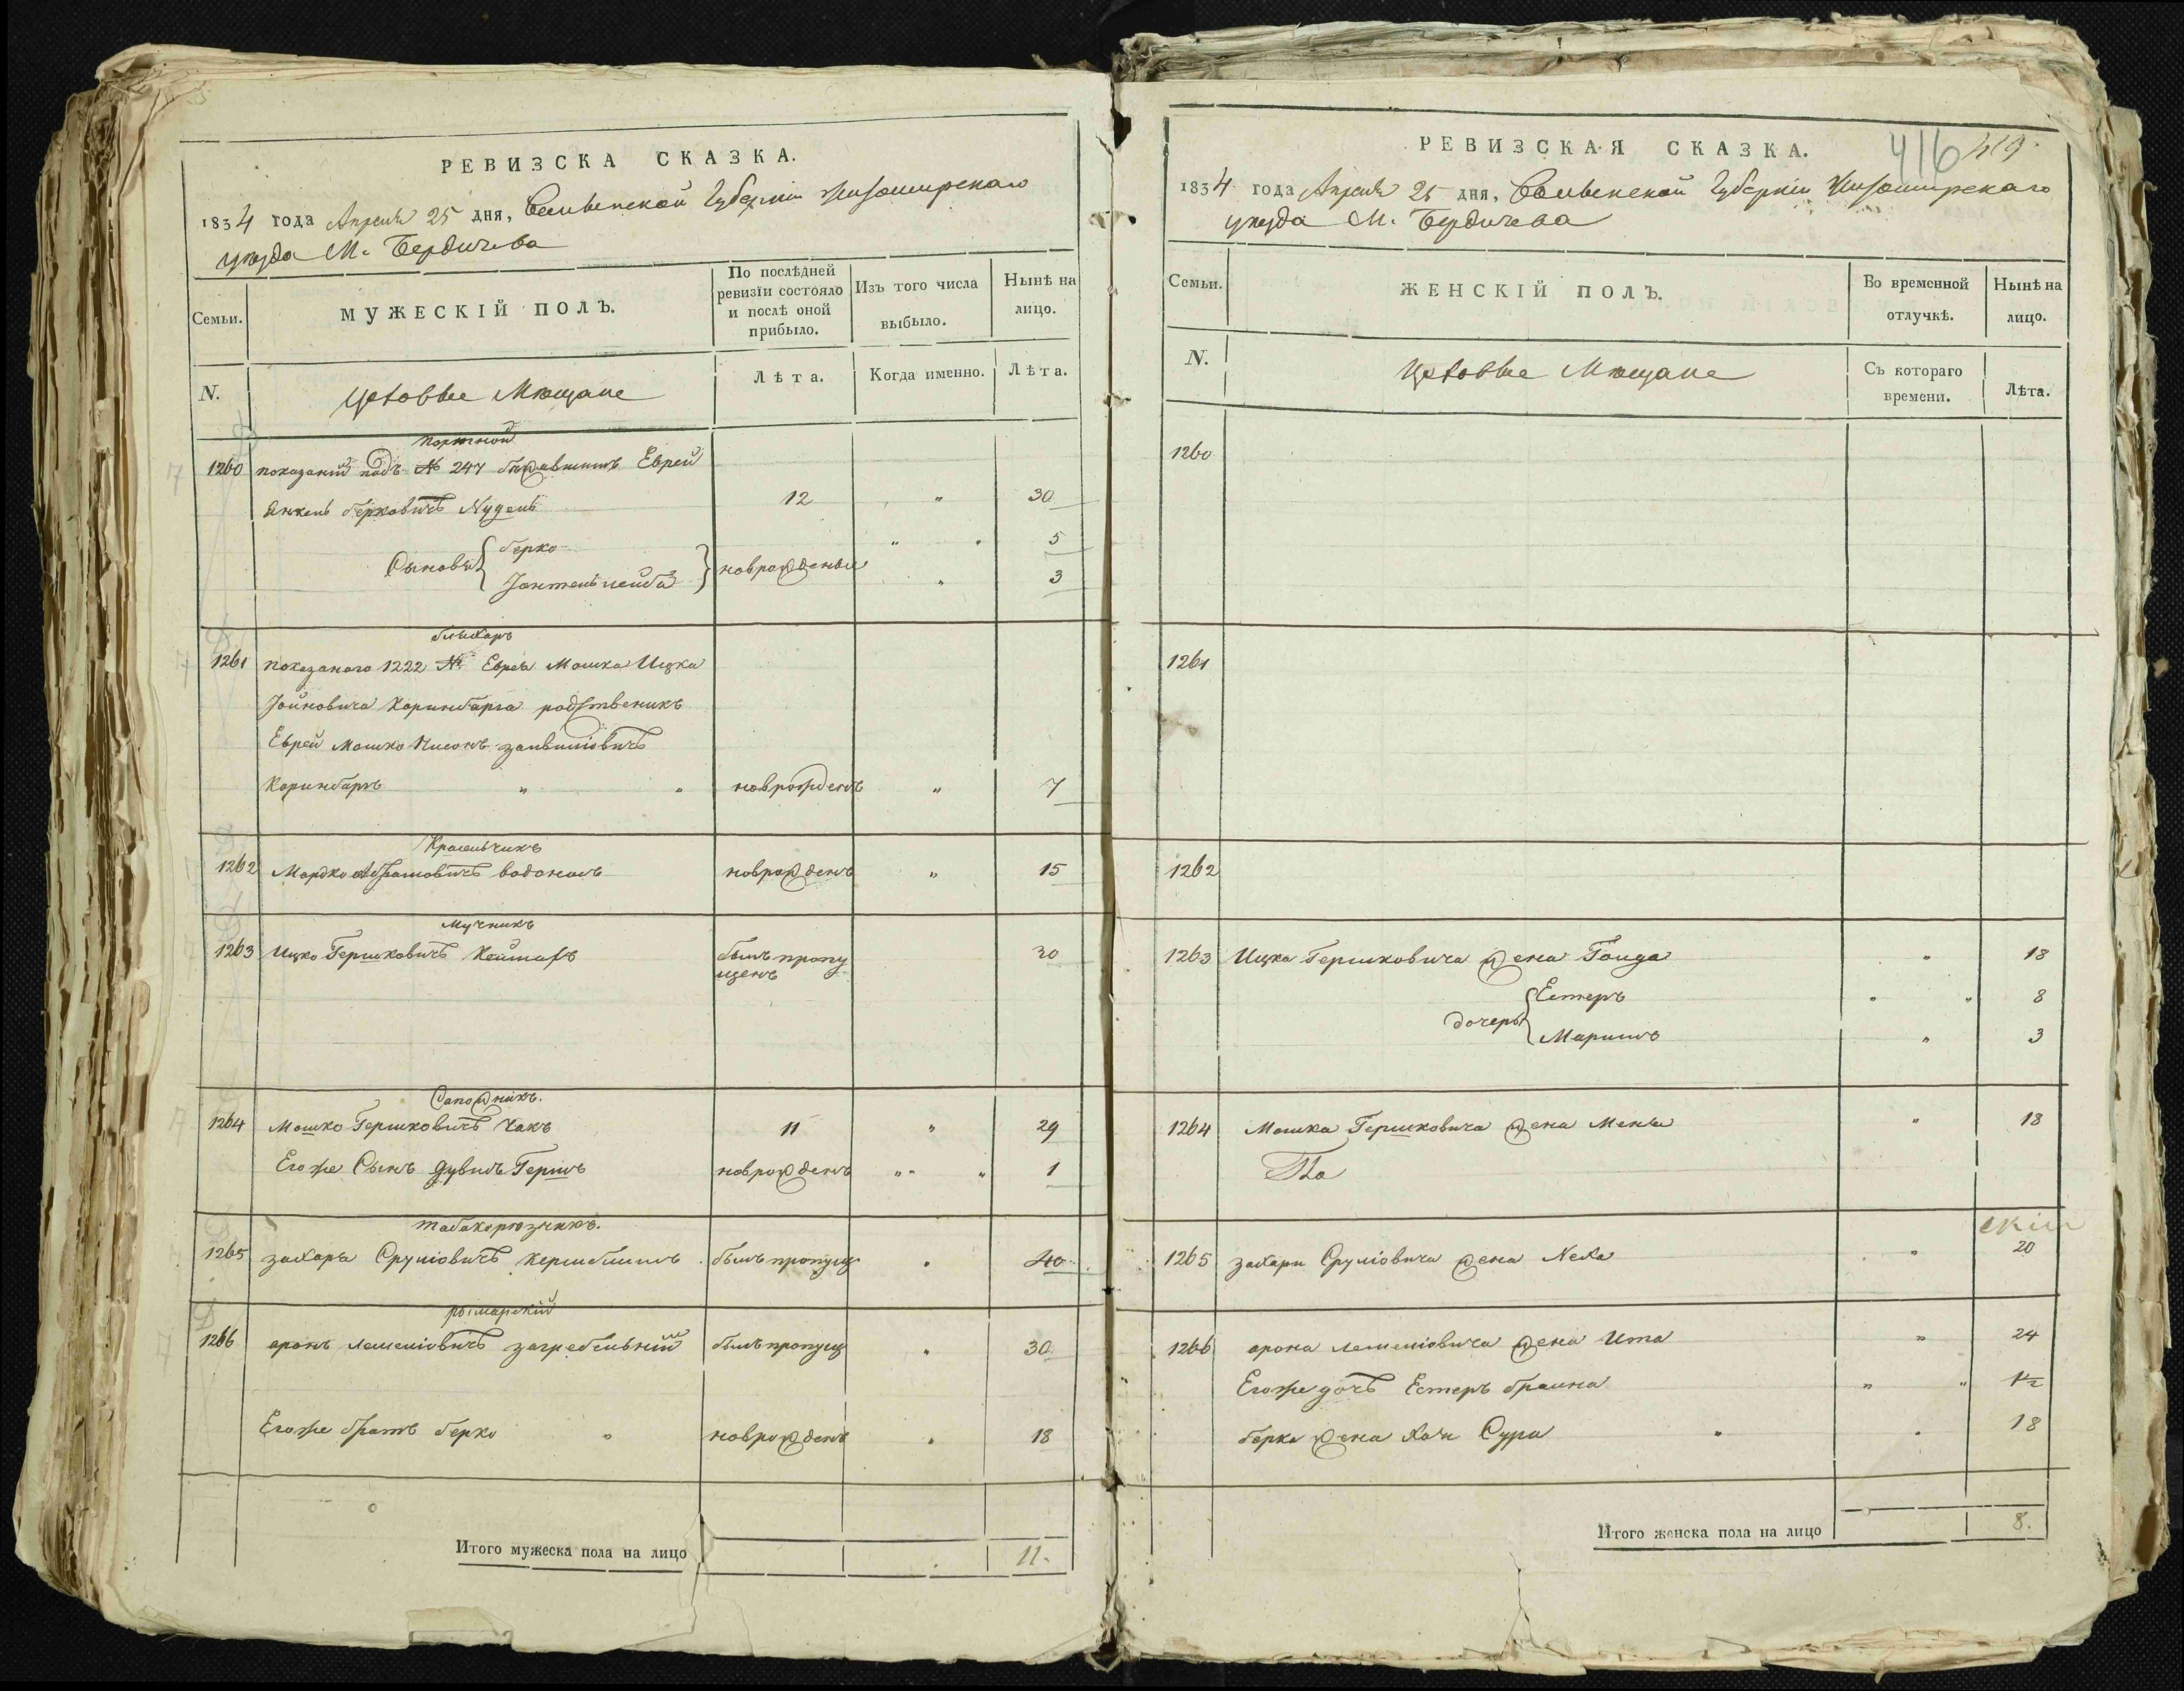 РЕВИЗСКА СКАЗКА.
1834 года Апреля 25 дня, Волынской Губерніи Житомирскаго
уезда М. Бердичева
Семьи.
МУЖЕСКІЙ ПОЛЪ.
По послѣдней ревизіи состояло и послѣ оной прибыло.
Изъ того числа выбыло.
Нынѣ на лицо.
N.
Цеховые Мещане
Лѣта.
Когда именно.
Лѣта.
портной
1260 показаній подъ № 247 Еврей
Янкель Берковичъ Нудель 12 " 30
Сыновья Берко " " 5
новрожденые
Іонтель лейба " 3
1261 показаного 1222 № Еврея Мошка Ицка
Іойновича Каринбарга родственикъ
Еврей Мошко Нисонъ
Каринбаргъ " " новрожденъ " 7
Красильчикъ
1262 Мордко Абрамовичъ водоносъ новрожденъ " 15
Мучникъ
1263 Ицко Гершковичъ былъ пропу 30
щенъ
Сапожникъ.
1264 Мошко Гершковичъ Чакъ 11 " 29
Егоже Сынъ Дувидъ Гершъ новрожденъ " " 1
1265 захаря Сруліовичъ былъ пропущ " 40
рымарскій
1266 аронъ загребельній былъ пропущ " 30
Егоже братъ берко " новрожденъ " 18
Итого мужеска пола на лицо 11.
РЕВИЗСКАЯ СКАЗКА.
416 419
1834 года Апреля 25 дня, Волынской Губерніи Житомирскаго
уезда М. Бердичева
Семьи.
ЖЕНСКІЙ ПОЛЪ.
Во временной отлучкѣ.
Нынѣ на лицо.
N.
Цеховые Мещане
Съ котораго времени.
Лѣта.
1260
1261
1262
1263 Ицка Гершковича жена Гольда " 18
Естеръ " " 8
дочеры
Маримъ " 3
1264 Мошка Гершковича жена Менья " 18
1265 захари Сруліовича жена Неха " 20
1266 арона жена Ита " 24
Егоже дочъ Естеръ браина " " 1½
берка жена Хая Сура " " 18
Итого женска пола на лицо 8.